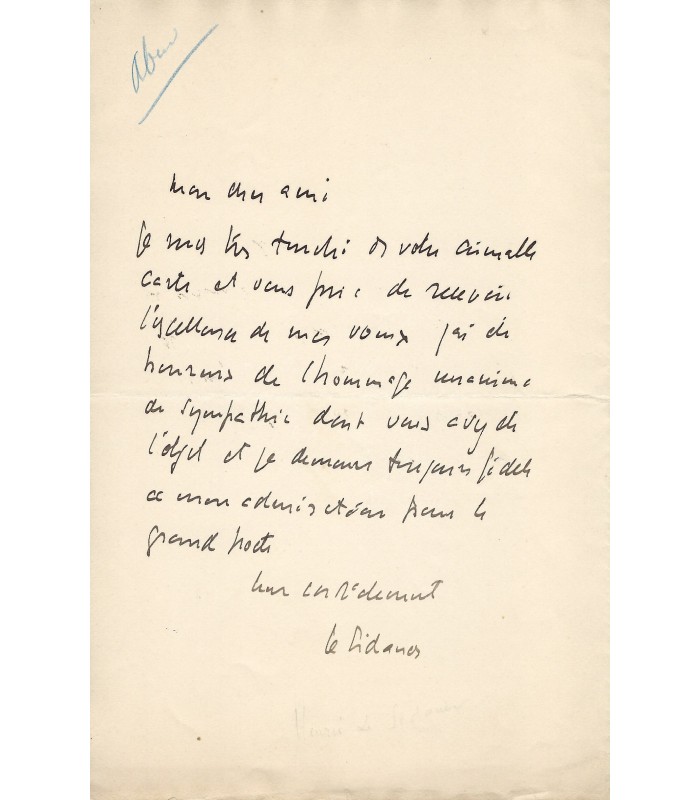 Mon cher ami
Je suis très touché de votre aimable
carte et vous prie de recevoir
l'excellence de mes voeux j'ai été
heureux de l'hommage unanime
de sympathie dont vous avez été
l'objet et je demeure toujours fidèle
a mon admiration pour le
grand poète
bien cordialement
Le Sidaner
Henri Le Sidaner